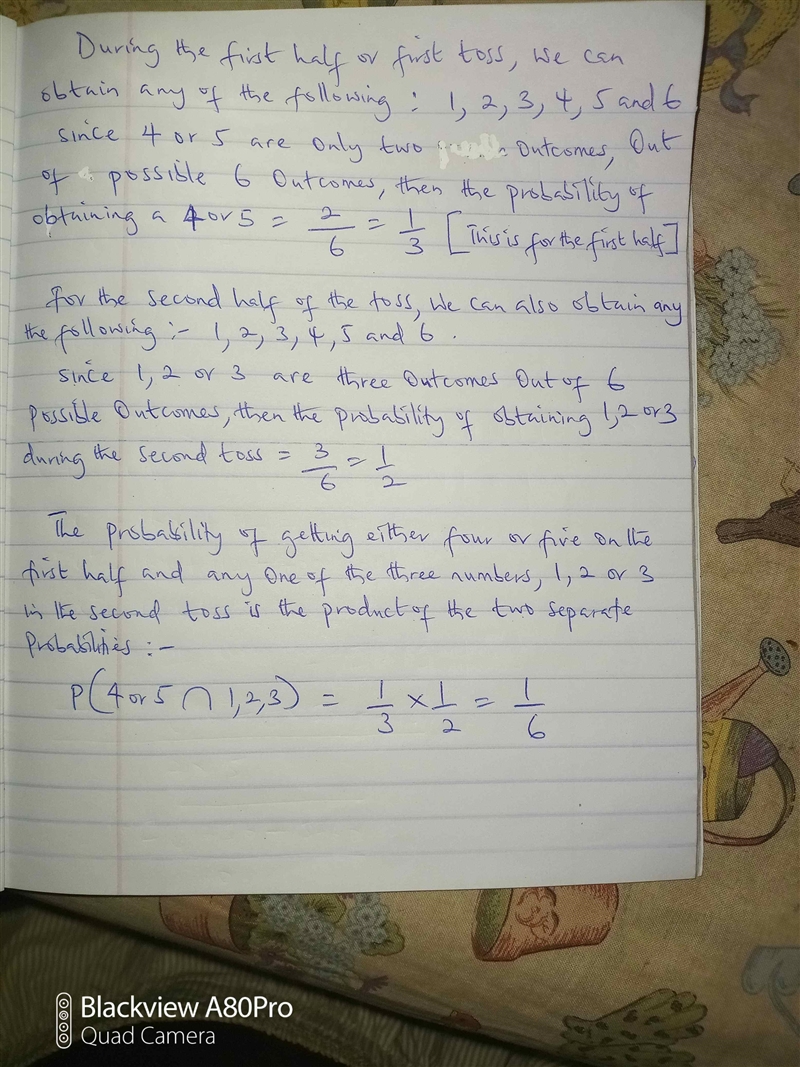 During the first half or first toss, we can
obtain any of the following : 1, 2, 3, 4, 5 and 6
since 4 or 5 are only two outcomes, Out
of possible 6 Outcomes, then the probability of
obtaining a 4 or 5 = 2/6 = 1/3 [This is for the first half]
For the second half of the toss, we can also obtain any
the following :- 1, 2, 3, 4, 5 and 6.
Since 1, 2 or 3 are three Outcomes Out of 6
Possible Outcomes, then the probability of obtaining 1, 2 or 3
during the second toss = 3/6 = 1/2
The probability of getting either four or five on the
first half and any One of the three numbers, 1, 2 or 3
in the second toss is the product of the two separate
Probabilities :-
P(4 or 5 ∩ 1, 2, 3) = 1/3 × 1/2 = 1/6
Blackview A80Pro
Quad Camera